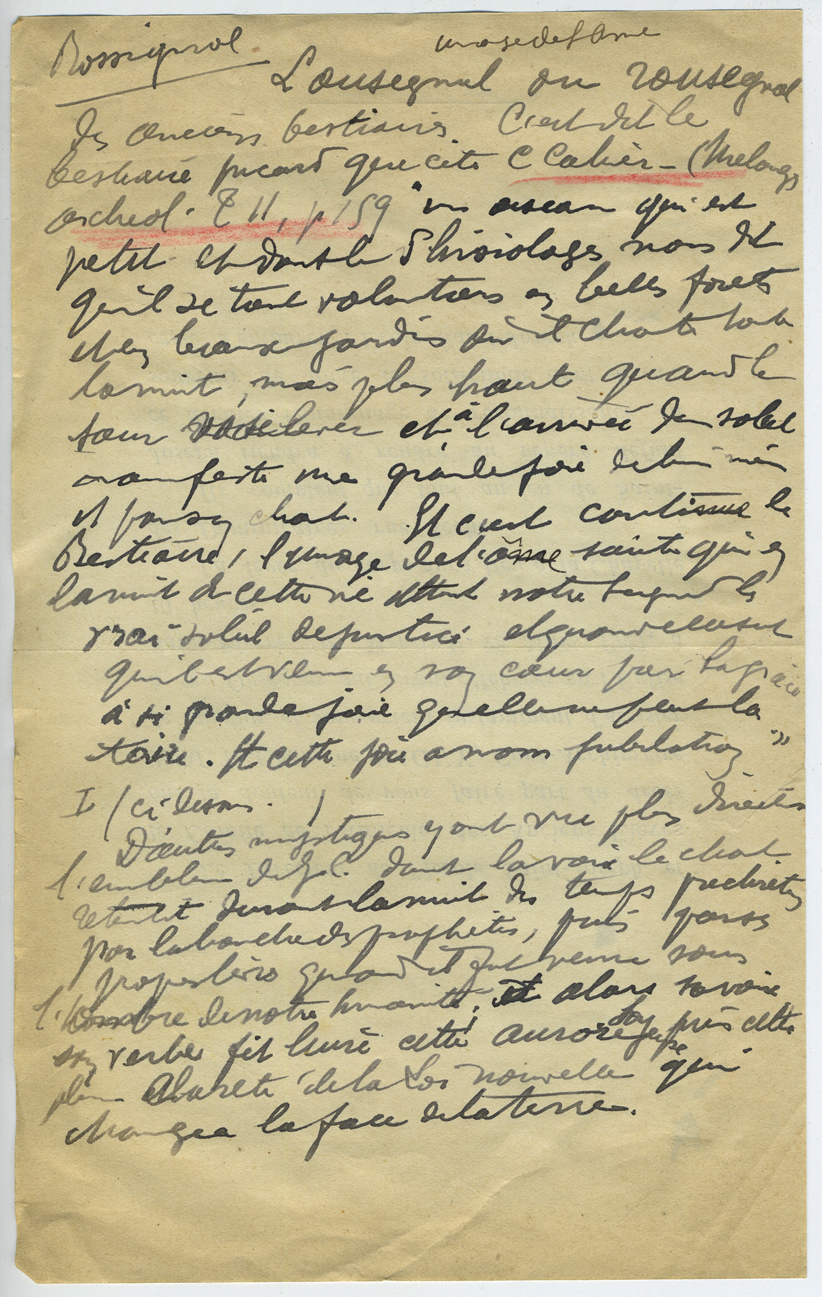 Rossignol
image de l'âme
Lousegnul ou rousegnol
des anciens bestiaires. C'est dit le
bestiaire picard que cite C Cahier - (Melanges
archeol. T II, p 159 " un oiseau qui est
petit et dont le Phisiologes nous dit
qu'il se tient volontiers en belles forets
et en beaux jardins où il chante toute
la nuit, mais plus haut quand le
jour lever et à l'arrivée du soleil
manifeste une grande joie de lui même
et par son chant. Et c'est continue le
Bestiaire, l'image de l'âme sainte qui en
la nuit de cette vie attend notre Seigneur le
vrai soleil de justice et quand elle sent
qu'il est venu en son cœur par la grâce
a si grande joie qu'elle ne peut la
taire. Et cette joie a nom jubilation "
I (ci dessus. )
D'autres mystiques y ont vu plus directe
l'emblème de J.C. dont la voix le chant
retentit durant la nuit des temps prechrétiens
par la bouche des prophètes, puis
quand il fut venu sous
l'ombre de notre humanité, et alors sa voix
son verbe fit luire cette aurore puis cette
pleine clarté de la Loi nouvelle qui
changea la face de la terre.